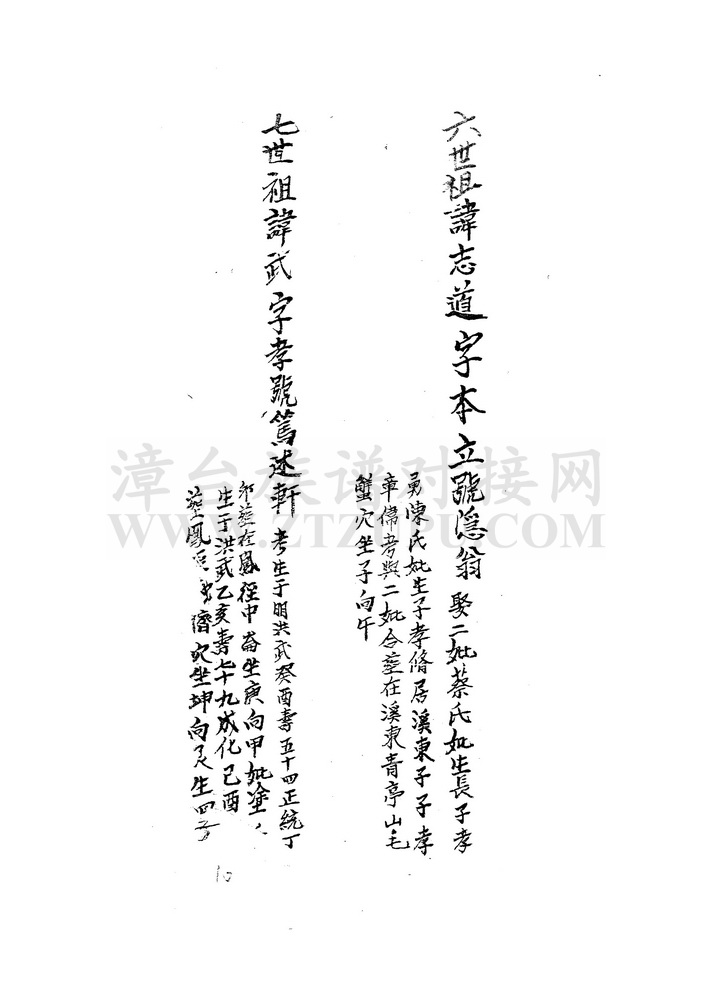 六世祖諱志道字本立號隱翁 娶二妣蔡氏妣生長子孝
勇陳氏妣生子孝脩居溪東子子孝
章偉考與二妣合塟在溪東青亭山毛
蟹穴坐子向午
七世祖諱武字孝號篤述軒 考生于明洪武癸酉壽五十四正統丁
卯塟在鳳徑中崙坐庚向甲妣塗
生于洪武乙亥壽七十九成化己酉
塟鳳 穴坐坤向艮生四子
漳台族谱对接网
WWW.ZTZUPU.COM
10